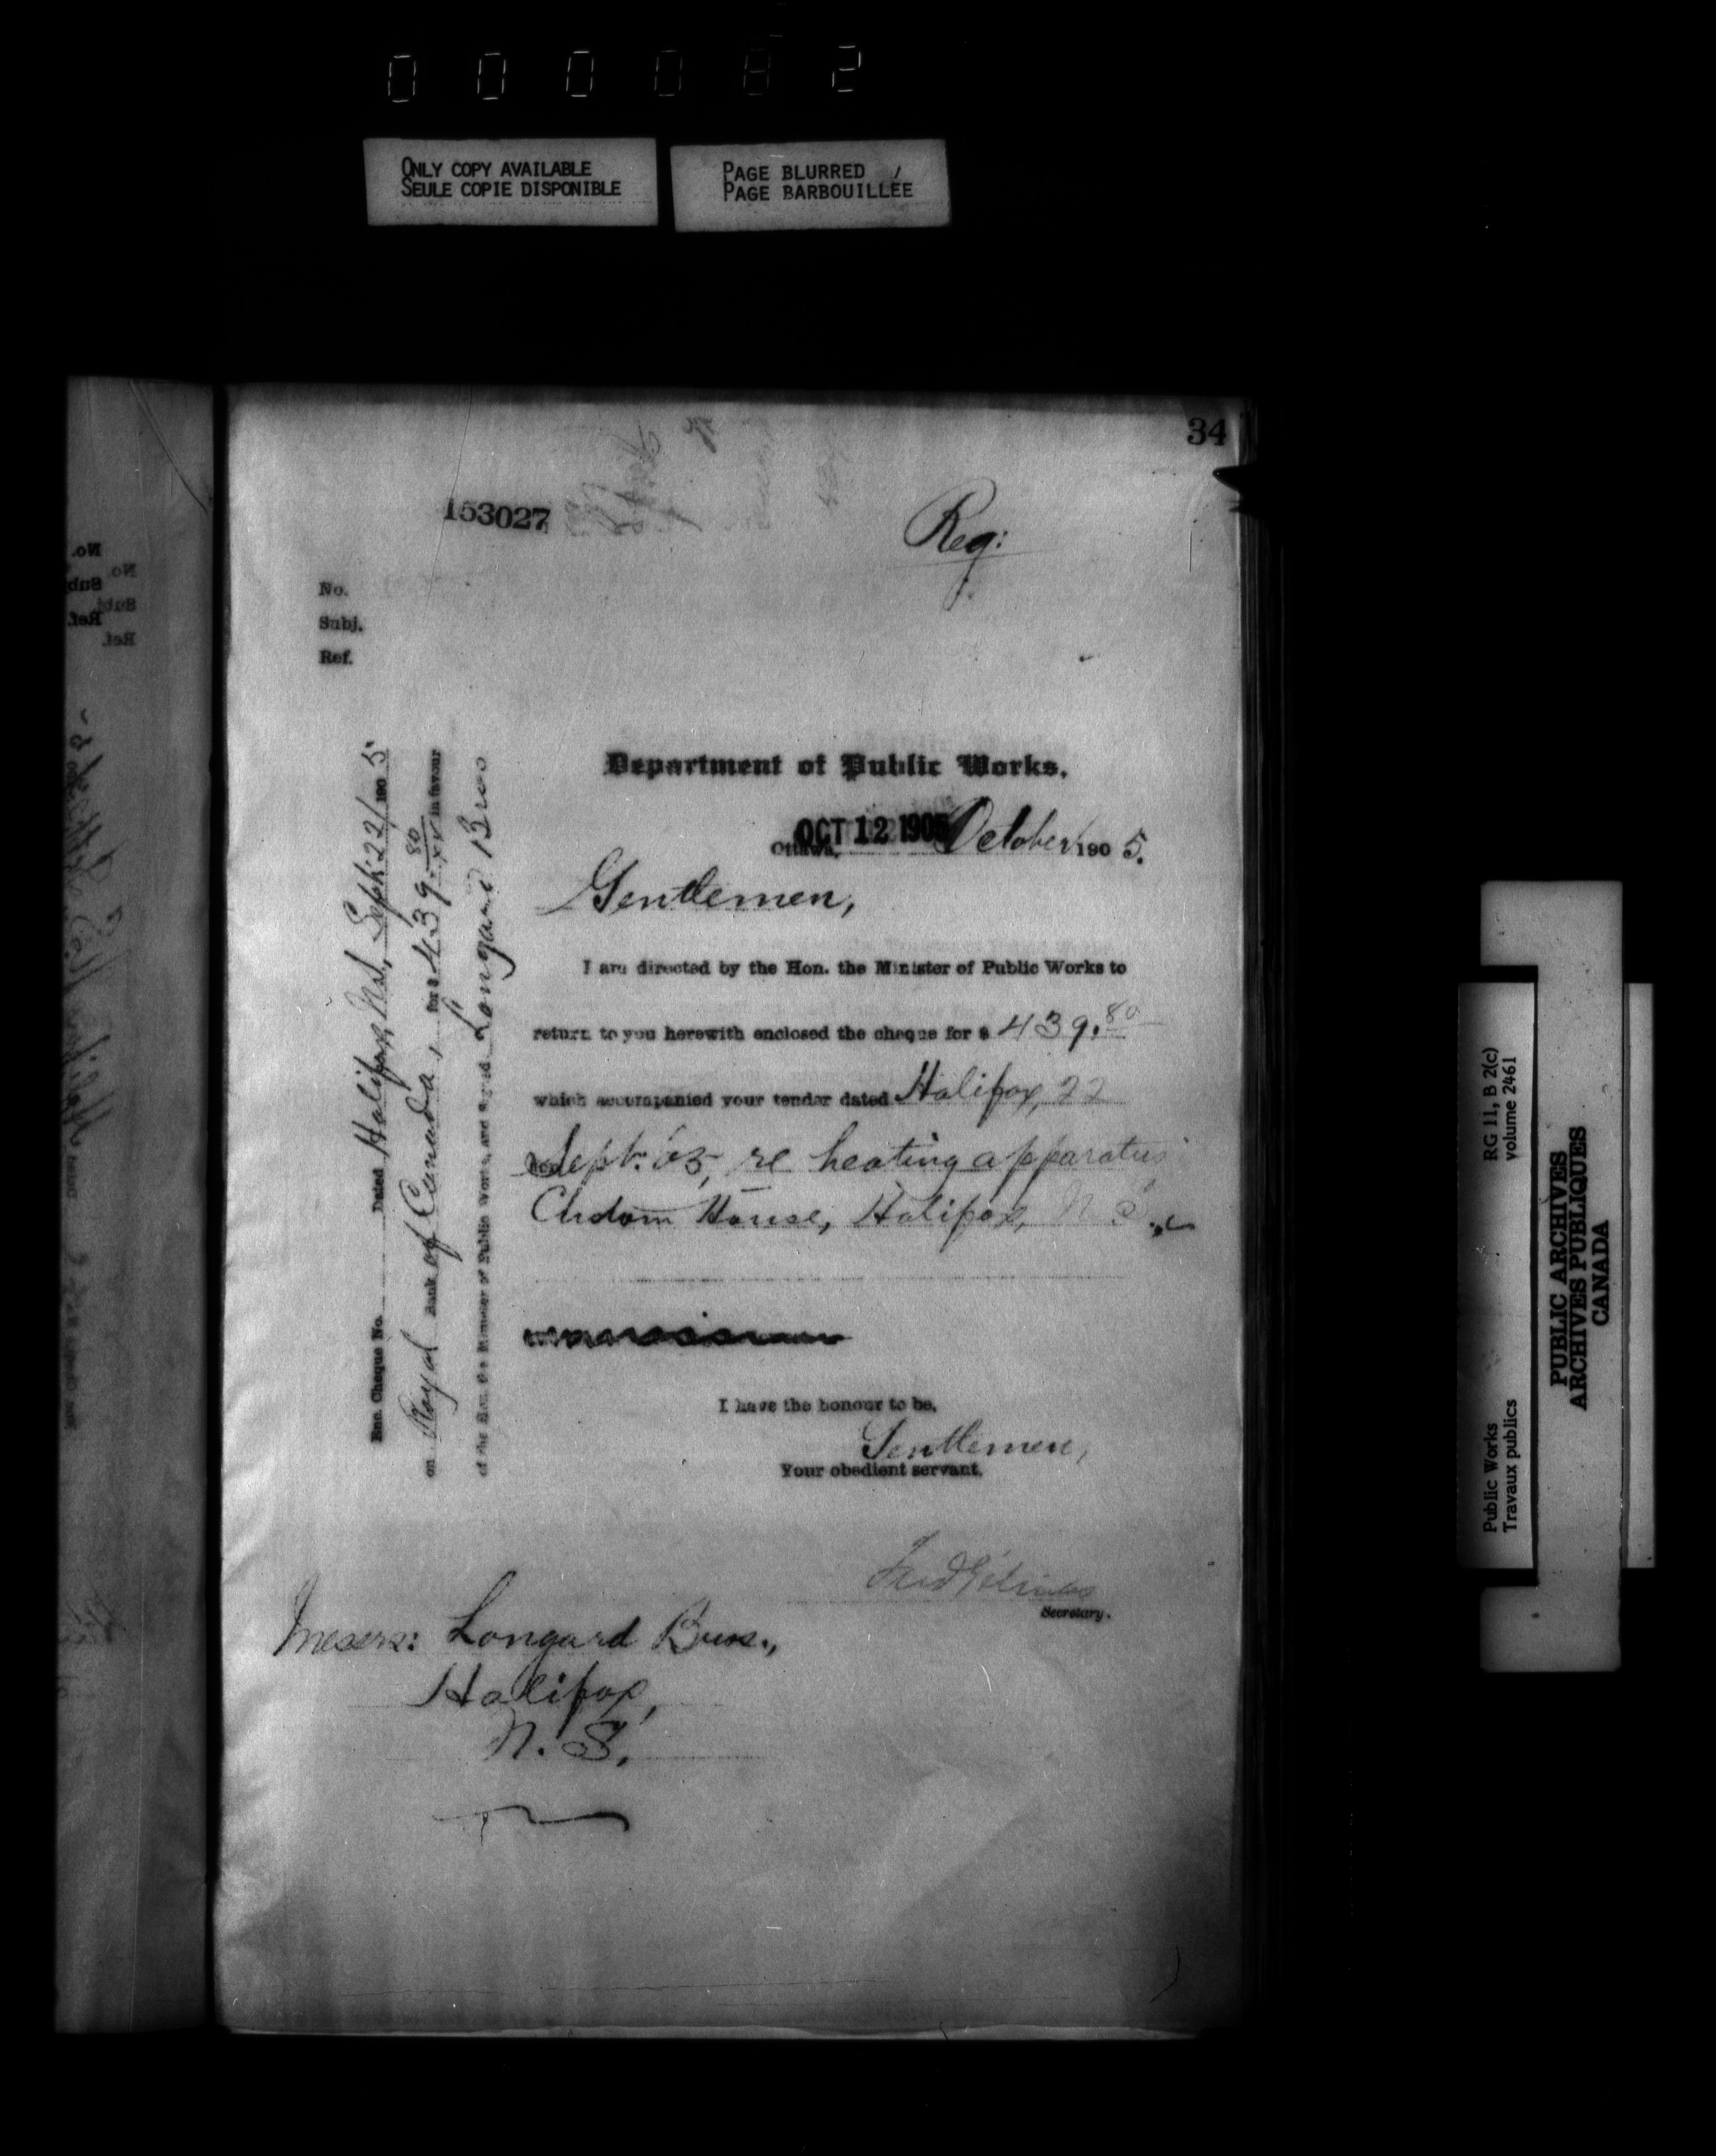 000082
ONLY COPY AVAILABLE
SEULE COPIE DISPONIBLE
PAGE BLURRED
PAGE BARBOUILLÉE
34
153027
Reg:
No.
Subj.
Ref.
Department of Public Works.
OCT 12 1905
Ottawa, October 1905.
Gentlemen,
I am directed by the Hon. the Minister of Public Works to
return to you herewith enclosed the cheque for $ 439.80
which accompanied your tender dated Halifax, 22
Sept. '05, re heating apparatus
Custom House, Halifax, N.S.,
I have the honour to be,
Gentlemen,
Your obedient servant,
Secretary.
Messrs: Longard Bros.,
Halifax,
N. S.
Enc. Cheque No. Dated Halifax, N.S., Sept. 22/1905
on Royal Bank of Canada, for $ 439.80 in favour
of the Hon. the Minister of Public Works, and signed Longard Bros
Public Works
Travaux publics
RG 11, B 2(c)
volume 2461
PUBLIC ARCHIVES
ARCHIVES PUBLIQUES
CANADA